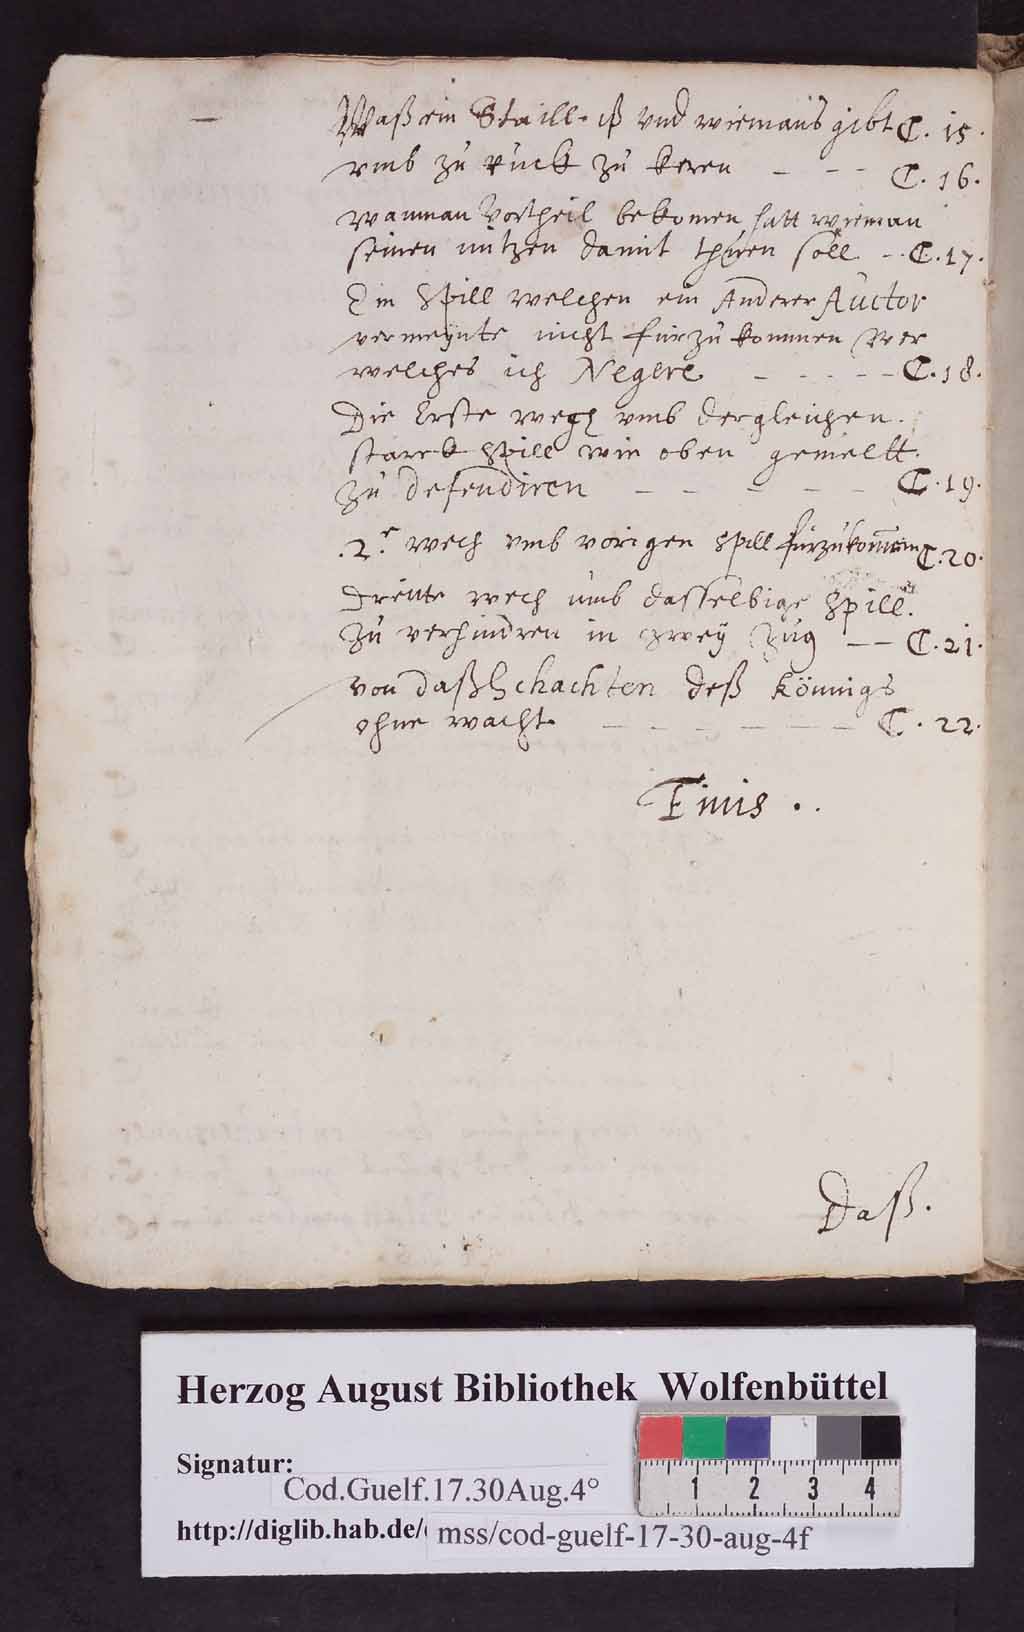 Waß ein Staill iß vnd wiemans gibt C. 15.
vmb zu rück zu keren - - - C. 16.
wanman vortheil bekomen hatt wieman
seinen nutzen damit thuen soll - . C. 17.
Ein Spill welchen ein Anderer Auctor
vermeÿnte nicht fürzükommen wer
welches ich Negere - - - - - C. 18.
Die Erste wegh vmb dergleichen
starck Spill wie oben gemellt
zu defendiren - - - - - - C. 19.
.2.e wech vmb vorigen spill fürzükom̃en C. 20.
Dreitte wech umb dasselbige Spill.
Zu verhindren in zweÿ Zug - - C. 21.
von daß Schachten deß Königs
ohne wacht - - - - - - C. 22.
Finis ..
Daß.
Herzog August Bibliothek Wolfenbüttel
Signatur:
Cod.Guelf.17.30Aug.4°
http://diglib.hab.de/
mss/cod-guelf-17-30-aug-4f
1 2 3 4